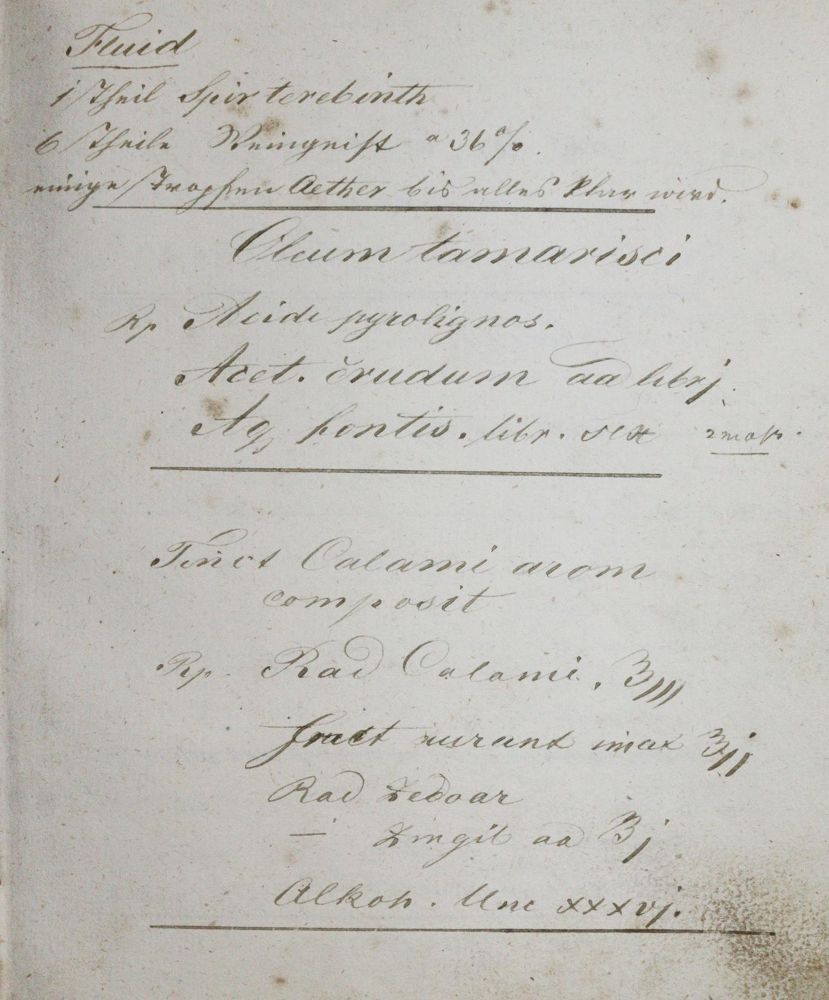 Fluid
1 Theil Spir terebinth
6 Theile Weingeist a 36%.
einige Tropfen Aether bis alles klar wird.
Oleum tamarisci
Rp Acidi pyrolignos.
Acet. crudum aa libr j.
Aq fontis. libr. sex
Tinct Calami arom
composit
Rp. Rad Calami. ℥III
fruct aurant imat ℥jj
Rad Zedoar
— Zingib aa ℥j
Alkoh. Unc xxxvj.